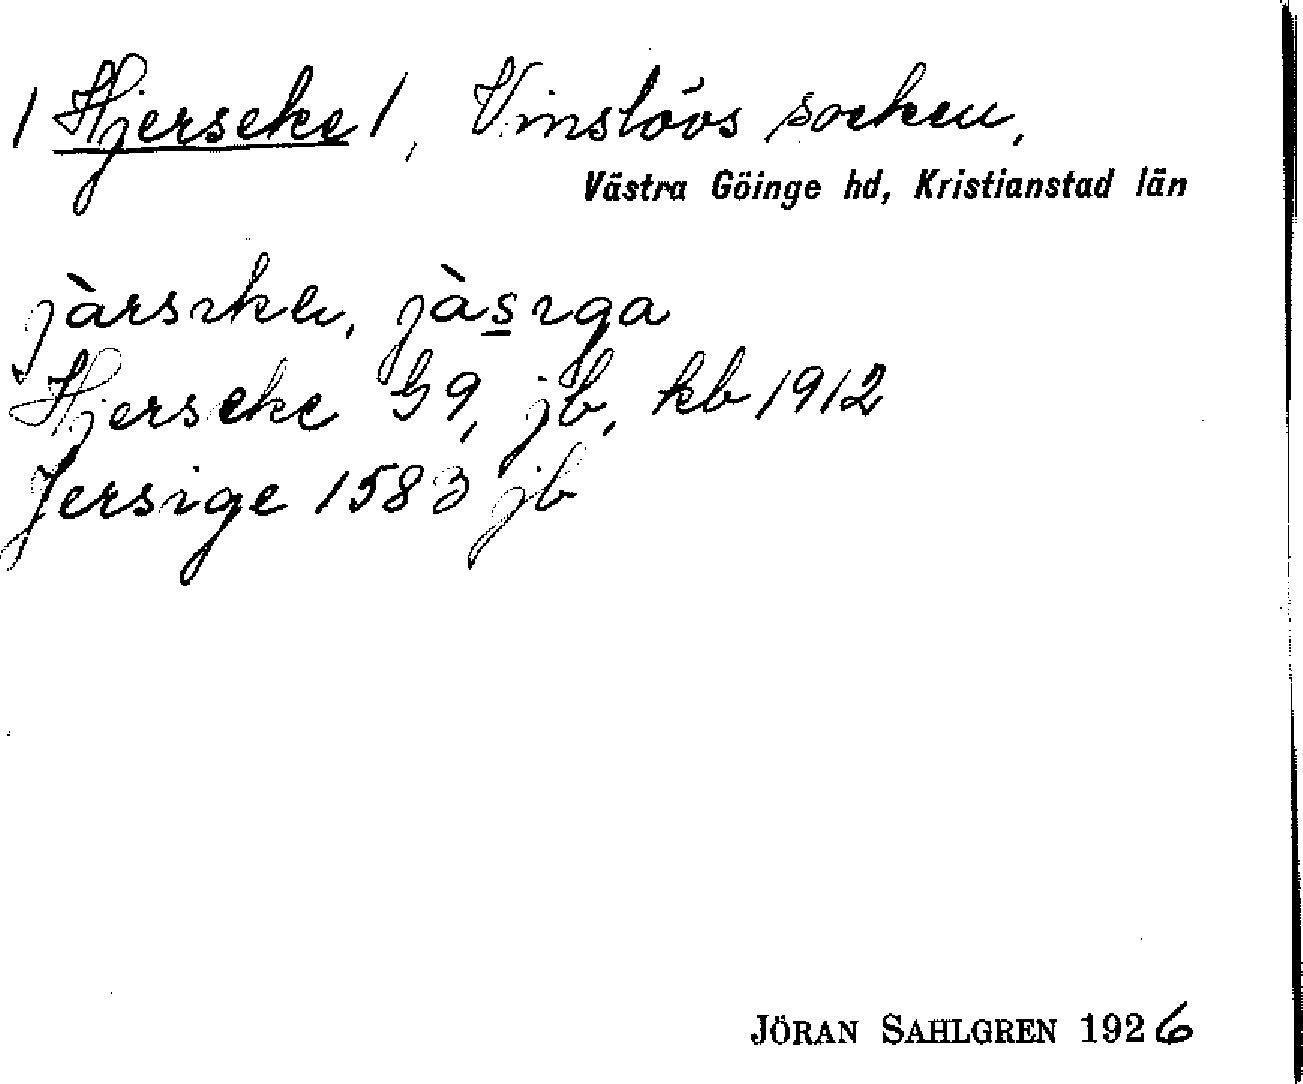 / Hjerseke /, Vinslövs socken,
Västra Göinge hd, Kristianstad län
jàrsıka, jàsıga
Hjerseke G9, jb, kb 1912
Jersige 1583 jb
JÖRAN SAHLGREN 1926